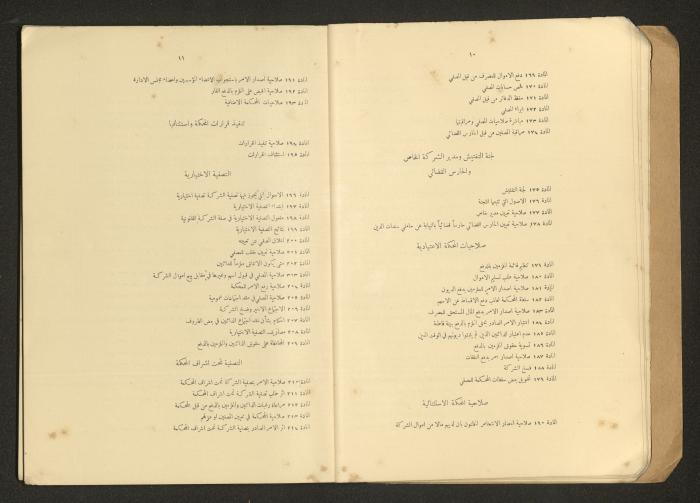 ١٠
المادة ١٦٩ دفع الاموال للتصرف من قبل المصفي
المادة ١٧٠ فحص حسابات المصفي
المادة ١٧١ حفظ الدفاتر من قبل المصفي
المادة ١٧٢ ابراء المصفي
المادة ١٧٣ مباشرة صلاحيات المصفي ومراقبتها
المادة ١٧٤ مراقبة المصفين من قبل الحارس القضائي
لجنة التفتيش ومدير الشركة الخاص
والحارس القضائي
المادة ١٧٥ لجنة التفتيش
المادة ١٧٦ الاصول التي تتبعها اللجنة
المادة ١٧٧ صلاحية تعيين مدير خاص
المادة ١٧٨ صلاحية تعيين الحارس القضائي حارساً قضائياً بالنيابة عن حاملي سندات الدين
صلاحيات المحكمة الاعتيادية
المادة ١٧٩ تنظيم قائمة الملزمين بالدفع
المادة ١٨٠ صلاحية طلب تسليم الاموال
المادة ١٨١ صلاحية اصدار الامر للملزمين بدفع الديون
المادة ١٨٢ سلطة المحكمة لطلب دفع الاقساط عن الاسهم
المادة ١٨٣ صلاحية اصدار الامر بدفع المال المستحق للمصرف
المادة ١٨٤ اعتبار الامر الصادر بحق الملزم بالدفع بينة قاطعة
المادة ١٨٥ عدم اعتبار الدائنين الذين لم يثبتوا ديونهم في الوقت المعين
المادة ١٨٦ تسوية حقوق الملزمين بالدفع
المادة ١٨٧ صلاحية اصدار امر بدفع النفقات
المادة ١٨٨ فسخ الشركة
المادة ١٨٩ تخويل بعض سلطات المحكمة للمصفي
صلاحية المحكمة الاستثنائية
المادة ١٩٠ صلاحية احضار الاشخاص المظنون بان لديهم مالا من اموال الشركة
١١
المادة ١٩١ صلاحية اصدار الامر باستجواب الاعضاء المؤسسين واعضاء مجلس الادارة
المادة ١٩٢ صلاحية القبض على الملزم بالدفع الفار
المادة ١٩٣ صلاحيات المحكمة الاضافية
تنفيذ قرارات المحكمة واستئنافها
المادة ١٩٤ صلاحية تنفيذ القرارات
المادة ١٩٥ استئناف القرارات
التصفية الاختيارية
المادة ١٩٦ الاحوال التي يجوز فيها تصفية الشركة تصفية اختيارية
المادة ١٩٧ ابتداء التصفية الاختيارية
المادة ١٩٨ مفعول التصفية الاختيارية في صفة الشركة القانونية
المادة ١٩٩ نتائج التصفية الاختيارية
المادة ٢٠٠ اعلان المصفي عن تعيينه
المادة ٢٠١ صلاحية تعيين خلف للمصفي
المادة ٢٠٢ متى يكون الاتفاق ملزماً للدائنين
المادة ٢٠٣ صلاحية المصفي في قبول اسهم وغيرها في مقابل بيع اموال الشركة
المادة ٢٠٤ صلاحية رفع الامر للمحكمة
المادة ٢٠٥ صلاحية المصفي في عقد اجتماعات عمومية
المادة ٢٠٦ الاجتماع الاخير وفسخ الشركة
المادة ٢٠٧ احكام بشأن عقد اجتماع الدائنين في بعض الظروف
المادة ٢٠٨ مصاريف التصفية الاختيارية
المادة ٢٠٩ المحافظة على حقوق الدائنين والملزمين بالدفع
التصفية تحت اشراف المحكمة
المادة ٢١٠ صلاحية الامر بتصفية الشركة تحت اشراف المحكمة
المادة ٢١١ اثر طلب تصفية الشركة تحت اشراف المحكمة
المادة ٢١٢ مراعاة رغبات الدائنين والملزمين بالدفع من قبل المحكمة
المادة ٢١٣ صلاحية المحكمة في تعيين المصفين او عزلهم
المادة ٢١٤ اثر الامر الصادر بتصفية الشركة تحت اشراف المحكمة